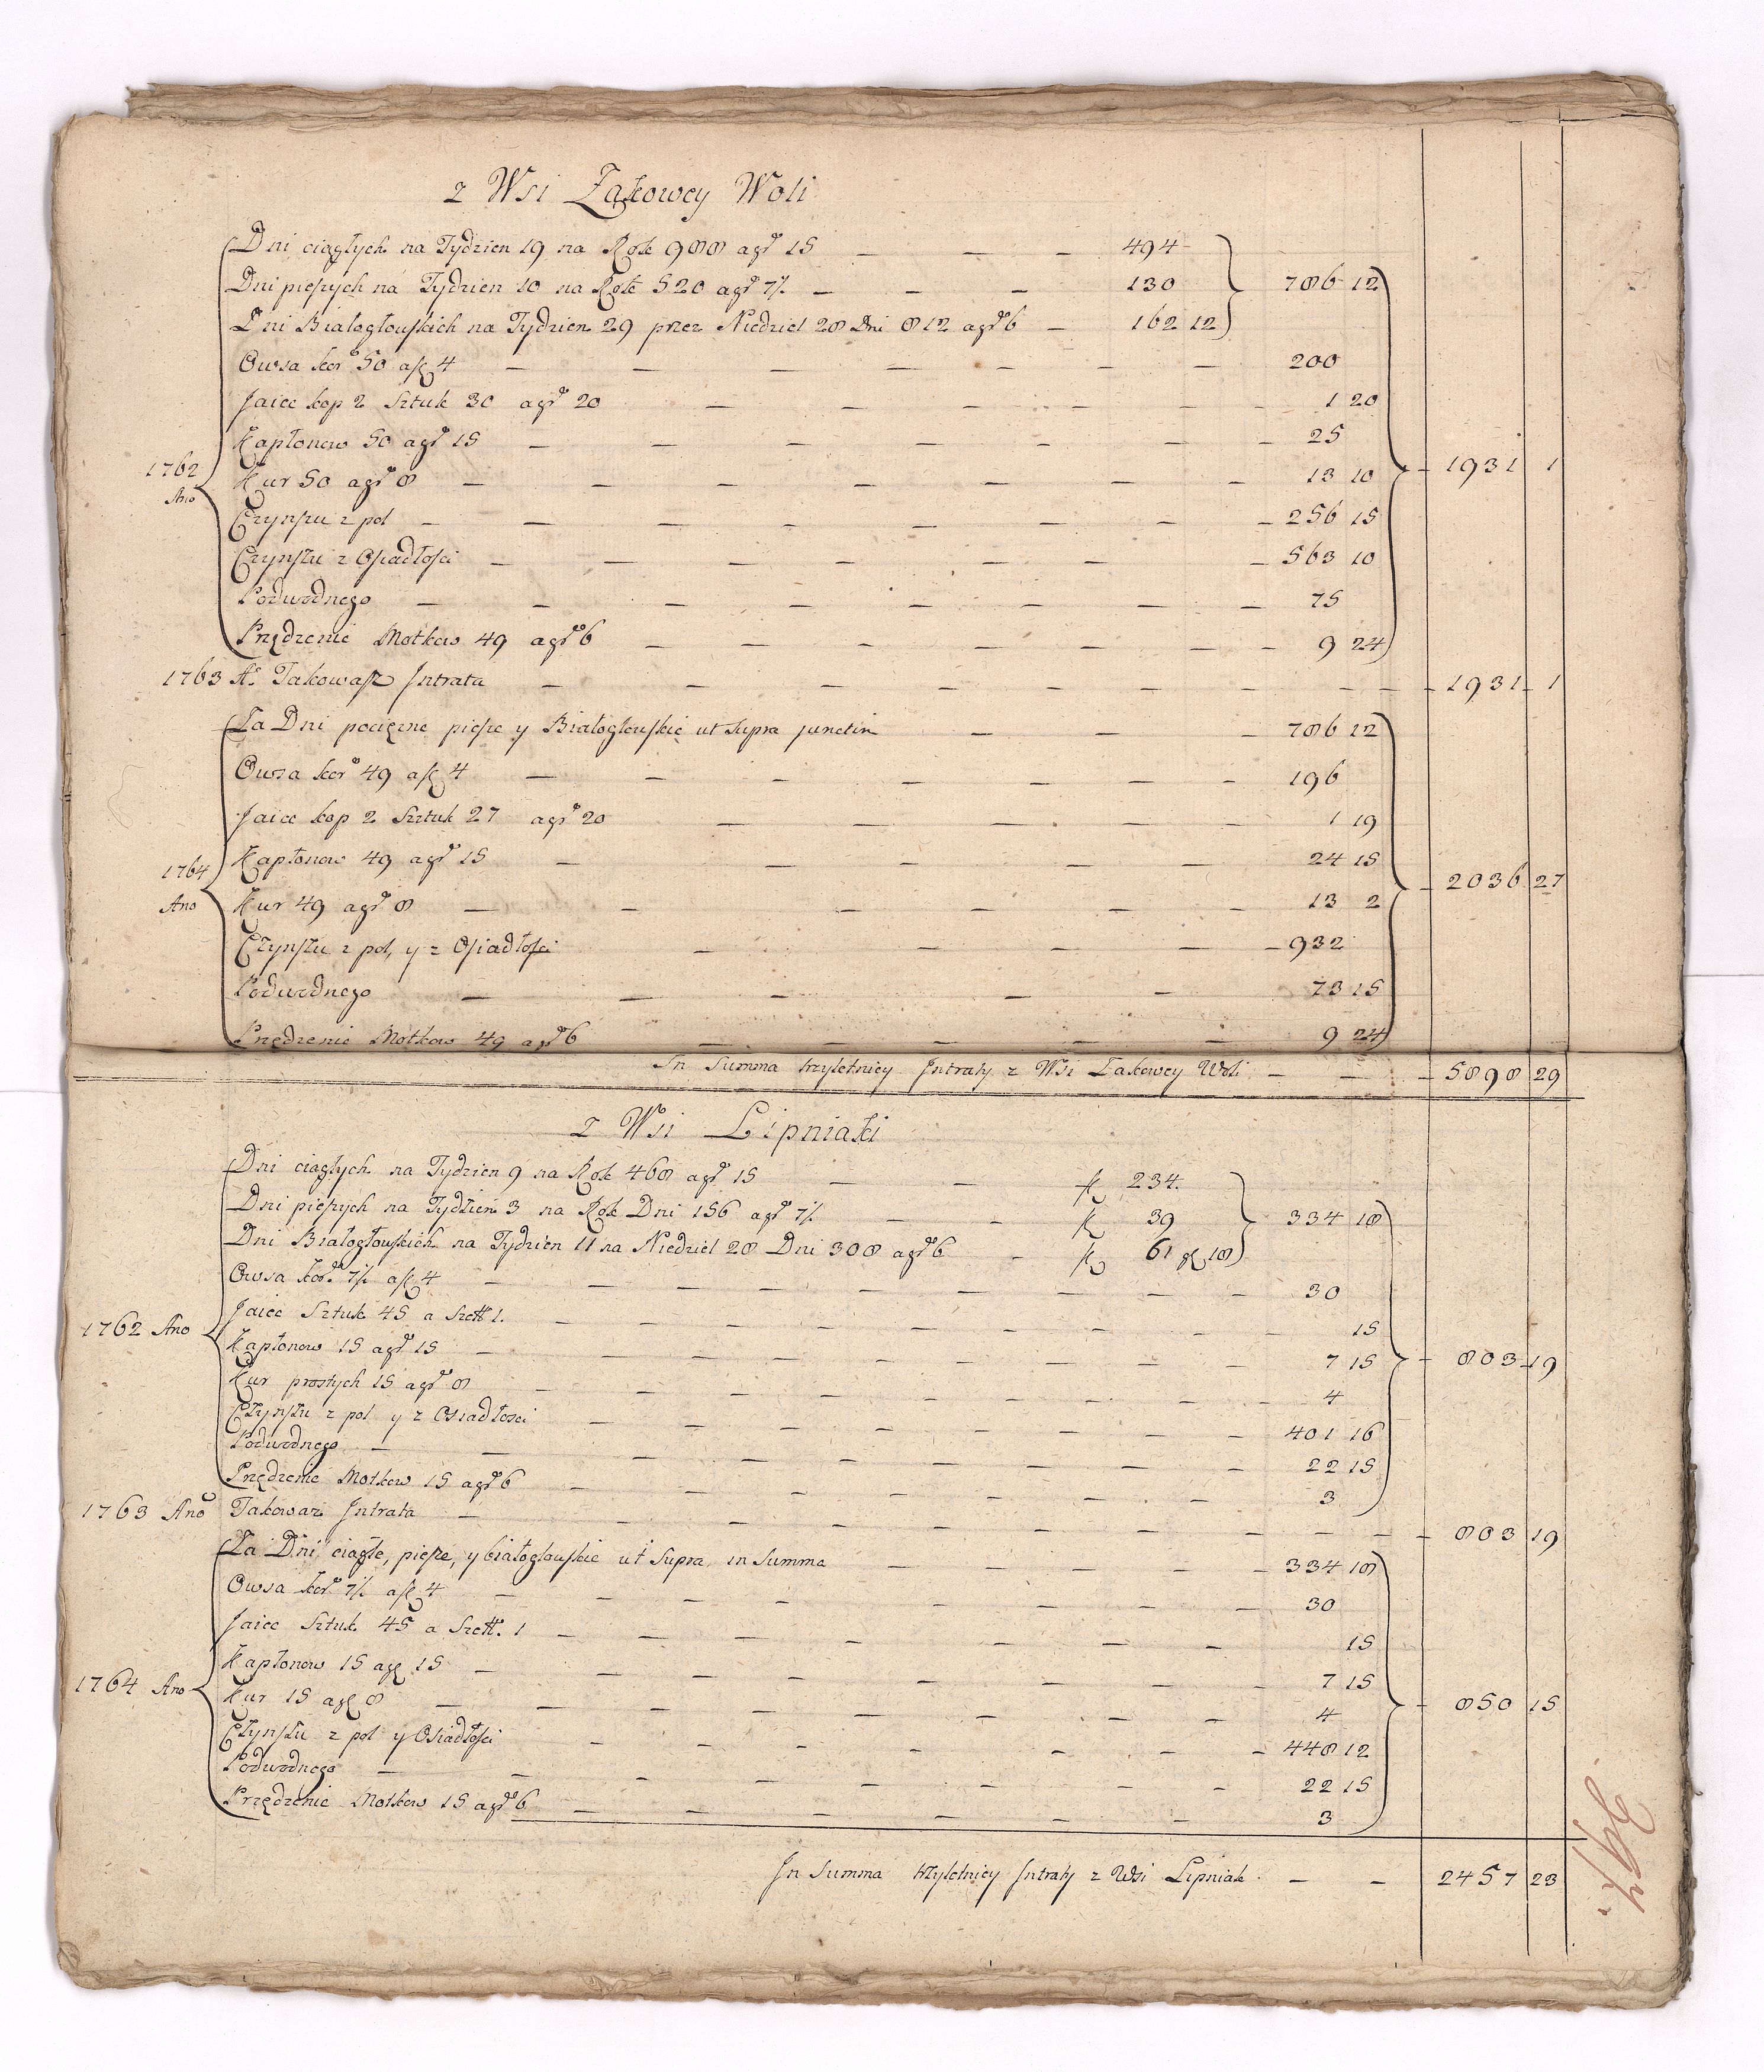 z Wsi Żakowey Woli
Dni ciągłych na Tydzien 19 na Rok 988 agr 15 — — — 494
Dni pieszych na Tydzien 10 na Rok 520 agr 7½ — — — 130 786 12
Dni Białogłouskich na Tydzien 29 przez Niedziel 28 Dni 812 agr 6 — 162 12
Owsa kor 50 a f 4 — — — — — — — 200
Jaiec kop 2 Sztuk 30 agr 20 — — — — — — 1 20
Kapłonow 50 agr 15 — — — — — — — 25
1762 Ano Kur 50 agr 8 — — — — — — — 13 10 — 1931 1
Czynszu z pol — — — — — — — — 256 15
Czynszu z Osiadłości — — — — — — — 563 10
Podwodnego — — — — — — — — 75
Przędzenie Motkow 49 agr 6 — — — — — — — 9 24
1763 Ao Takowasz Intrata — — — — — — — — 1931 1
Za Dni pociężne piesze y Białogłouskie ut supra junctin — — — 786 12
Owsa kor 49 a f 4 — — — — — — — 196
Jaiec kop 2 Sztuk 27 agr 20 — — — — — 1 19
1764 Kapłonow 49 agr 15 — — — — — — 24 15
Ano Kur 49 agr 8 — — — — — — 13 2 — 2036 27
Czynszu z pol, y z Osiadłości — — — — — — 932
Podwodnego — — — — — 73 15
Przędzenie Motkow 49 agr 6 — — — — — 9 24
In Summa trzyletniey Intraty z Wsi Żakowey Woli — — — 5898 29
z Wsi Lipniaki
Dni ciągłych na Tydzien 9 na Rok 468 agr 15 — — f 234.
Dni pieszych na Tydzien 3 na Rok Dni 156 agr 7½ — — f 39 334 18
Dni Białogłouskich na Tydzien 11 na Niedziel 28 Dni 308 agr 6 — f 61 gr 18
Owsa kor. 7½ a f 4 — — — — — — — — 30
1762 Ano Jaiec Sztuk 45 a Szell 1. — — — — — — — — 15
Kapłonow 15 agr 15 — — — — — — — — 7 15 — 803 19
Kur prostych 15 agr 8 — — — — — — — — 4
Czynszu z pol y z Osiadłosci — — — — — — — 401 16
Podwodnego — — — — — — — — 22 15
Przędzenie Motkow 15 agr 6 — — — — — — — 3
1763 Ano Takowaz Intrata — — — — — — — — 803 19
Za Dni ciągłe, piesze, y białogłouskie ut Supra in Summa — — — — 334 18
Owsa kor 7½ a f 4 — — — — — — — 30
Jaiec Sztuk 45 a Szell. 1 — — — — — — — 15
Kapłonow 15 agr 15 — — — — — — — 7 15
1764 Ano Kur 15 agr 8 — — — — — — — 4 — 850 15
Czynszu z pol y Osiadłości — — — — — — 448 12
Podwodnego — — — — — — — 22 15
Przędzenie Motkow 15 agr 6 — — — — — — 3
In Summa trzyletniey Intraty z Wsi Lipniak — — 2457 23